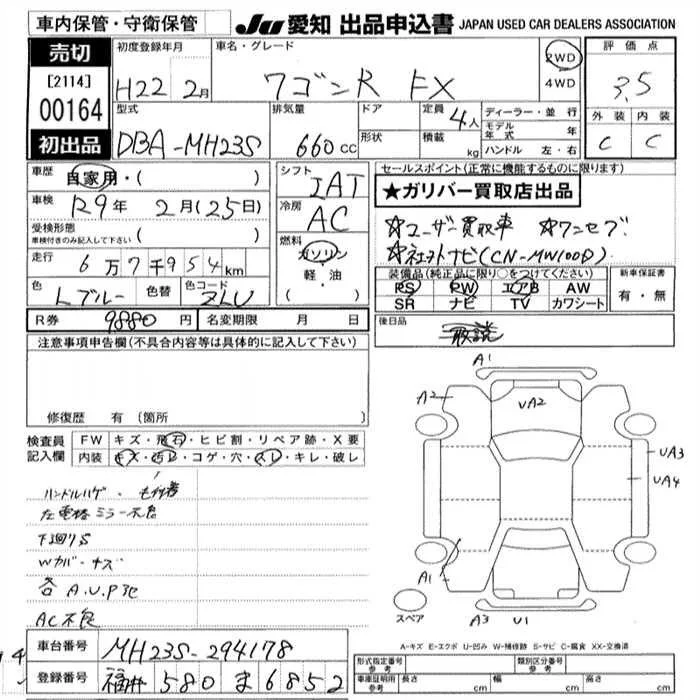 車内保管・守衛保管
JU 愛知 出品申込書 JAPAN USED CAR DEALERS ASSOCIATION
売切
[2114]
00164
初出品
初度登録年月
H22 2月
車名・グレード
ワゴンR FX
2WD
4WD
評価点
3.5
外装 内装
C C
型式
DBA-MH23S
排気量
660cc
ドア
形状
定員
4人
積載
kg
ディーラー・並行
モデル年式 年
ハンドル 左・右
車歴
自家用・( )
車検
R9年 2月(25日)
受検形態
車検付きのみ記入して下さい ( )
走行
6万7千954km
色
Lブルー
色替
色コード
ZLU
シフト
IAT
冷房
AC
燃料
ガソリン
軽・油
( )
セールスポイント(正常に機能するものに限ります)
★ガリバー買取店出品
☆ユーザー買取車 ☆ワンセグ
☆社外ナビ(CN-MW100D)
装備品(純正品に限り○をつけてください)
PS PW エアB AW
SR ナビ TV カワシート
新車保証書
有・無
後日品
取説
R券 9880円
名変期限 月 日
注意事項申告欄(不具合内容等は具体的に記入して下さい)
修復歴 有 [箇所
検査員記入欄
FW キズ・飛石・ヒビ割・リペア跡・X要
内装 キズ・汚レ・コゲ・穴・スレ・キレ・破レ
ハンドルハゲ・
左電格ミラー不良
下廻りS
Wカバーキズ
各A.U.P他
AC不良
A1
A2
UA2
UA3
UA4
A1
スペア
A3 U1
A-キズ E-エクボ U-凹み W-補修跡 S-サビ C-腐食 XX-交換済
車台番号
MH23S-294178
登録番号
福井 580 ま 6852
型式指定番号 参考
類別区分番号 参考
車庫証明用 参考
長さ cm
幅 cm
高さ cm